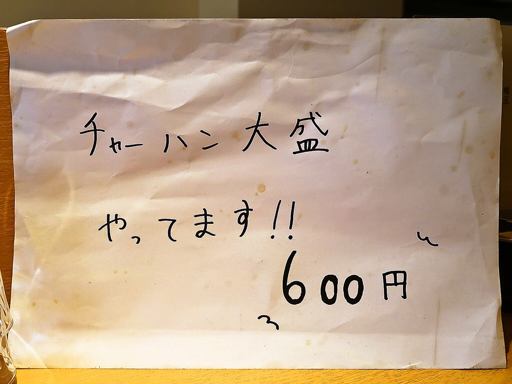 チャーハン大盛
やってます!!
600円